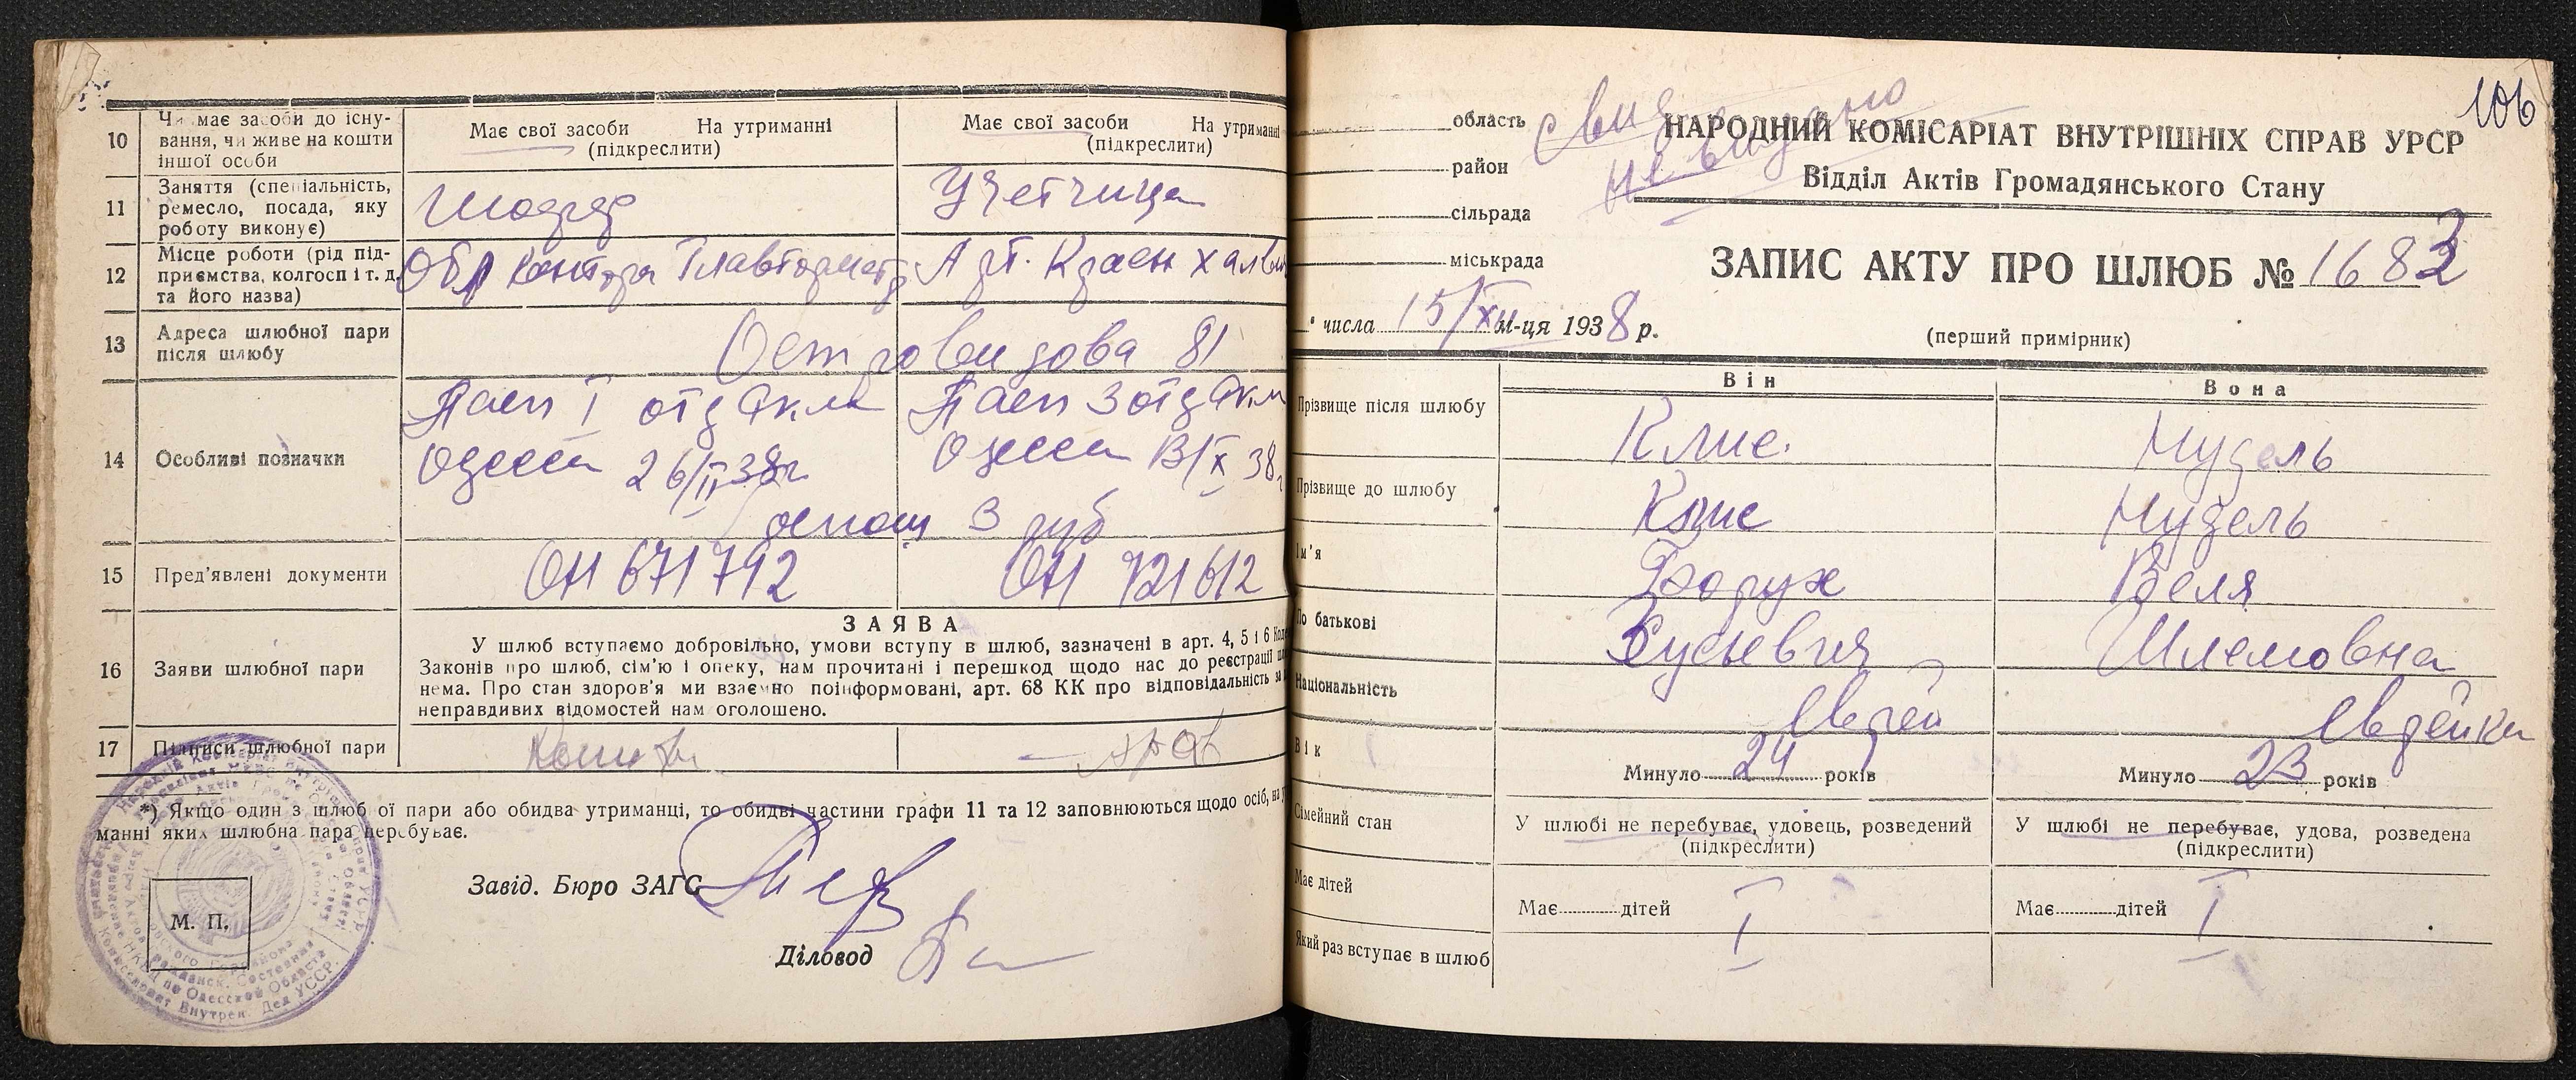 10
Чи має засоби до існування, чи живе на кошти іншої особи
Має свої засоби На утриманні
(підкреслити)
Має свої засоби На утриманні
(підкреслити)
11
Заняття (спеціальність, ремесло, посада, яку роботу виконує)
Шофер
Учетчица
12
Місце роботи (рід підприємства, колгосп і т. д. та його назва)
Обл контора
Арт. Красн
13
Адреса шлюбної пари після шлюбу
Островидова 81
14
Особливі позначки
Пасп I отд
Одесса 26/II 38г
Пасп 3 отд
Одесса 13/X 38г
3 руб
15
Пред'явлені документи
ОН 671792
ОН 721612
16
Заяви шлюбної пари
ЗАЯВА
У шлюб вступаємо добровільно, умови вступу в шлюб, зазначені в арт. 4, 5 і 6
Законів про шлюб, сім'ю і опеку, нам прочитані і перешкод щодо нас до реєстрації
нема. Про стан здоров'я ми взаємно поінформовані, арт. 68 КК про відповідальність за
неправдивих відомостей нам оголошено.
17
Підписи шлюбної пари
*) Якщо один з шлюбної пари або обидва утриманці, то обидві частини графи 11 та 12 заповнюються щодо осіб, на
манні яких шлюбна пара перебуває.
Завід. Бюро ЗАГС
М. П.
Діловод
106
область
район
сільрада
міськрада
НАРОДНИЙ КОМІСАРІАТ ВНУТРІШНІХ СПРАВ УРСР
Відділ Актів Громадянського Стану
ЗАПИС АКТУ ПРО ШЛЮБ № 1683
числа 15/XII м-ця 1938 р.
(перший примірник)
Він
Вона
Прізвище після шлюбу
Нудель
Прізвище до шлюбу
Нудель
Ім'я
Борух
Веля
По батькові
Зусьевич
Шлемовна
Національність
Еврей
Еврейка
Вік
Минуло 24 років
Минуло 23 років
Сімейний стан
У шлюбі не перебуває, удовець, розведений
(підкреслити)
У шлюбі не перебуває, удова, розведена
(підкреслити)
Має дітей
Має дітей
Має дітей
Який раз вступає в шлюб
I
I